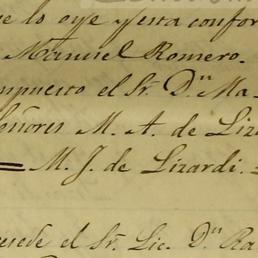 e lo oye y esta confor
Manuel Romero.
mpuesto el Sr. Dn Ma-
eñores M. A. de Liza
M. J. de Lizardi.
esede el Sr. Lic. Dn Ra